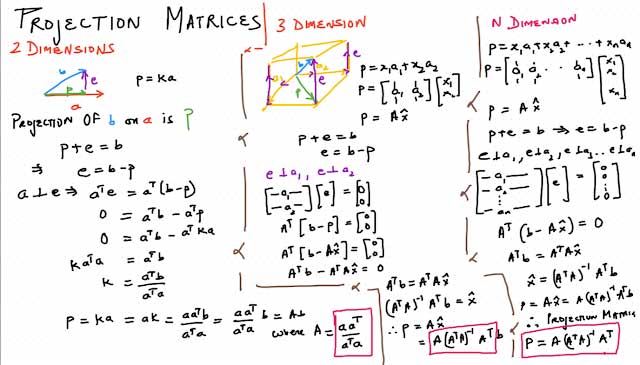 PROJECTION MATRICES
2 DIMENSIONS
b
e
p
a
p = ka
PROJECTION OF b on a is p
p + e = b
⇒ e = b - p
a ⊥ e ⇒ aᵀe = aᵀ(b - p)
0 = aᵀb - aᵀp
0 = aᵀb - aᵀka
k aᵀa = aᵀb
k = aᵀb / aᵀa
P = ka = ak = a aᵀb / aᵀa = a aᵀ / aᵀa b = Ab
where A = aaᵀ / aᵀa
3 DIMENSION
b
e
p
p = x₁a₁ + x₂a₂
p = A x̂
p + e = b
e = b - p
e ⊥ a₁, e ⊥ a₂
[— a₁ —; — a₂ —] [e] = [0; 0]
Aᵀ [b - p] = [0; 0]
Aᵀ [b - A x̂] = [0; 0]
Aᵀb - AᵀA x̂ = 0
Aᵀb = AᵀA x̂
(AᵀA)⁻¹ Aᵀb = x̂
∴ p = A x̂
= A(AᵀA)⁻¹ Aᵀb
p = x₁a₁ + x₂a₂ + ... + xₙaₙ
p = A x̂
p + e = b ⇒ e = b - p
Aᵀ (b - A x̂) = 0
Aᵀb = AᵀA x̂
x̂ = (AᵀA)⁻¹ Aᵀb
p = A x̂ = A(AᵀA)⁻¹ Aᵀb
∴ PROJECTION
P = A(AᵀA)⁻¹ Aᵀ